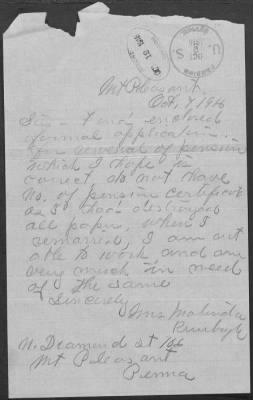 Mt Pleasant.
Oct, 7 1916
Sir - I send enclosed
formal application
for renewal of pension
which I hope is
correct do not have
No. of pension certificate
as I had destroyed
all paper, when I
remarried, I am not
able to work and am
very much in need
of the same
Sincerely
Mrs Malinda
N. Diamond st 166
Mt Pleasant
Penna
U. S.